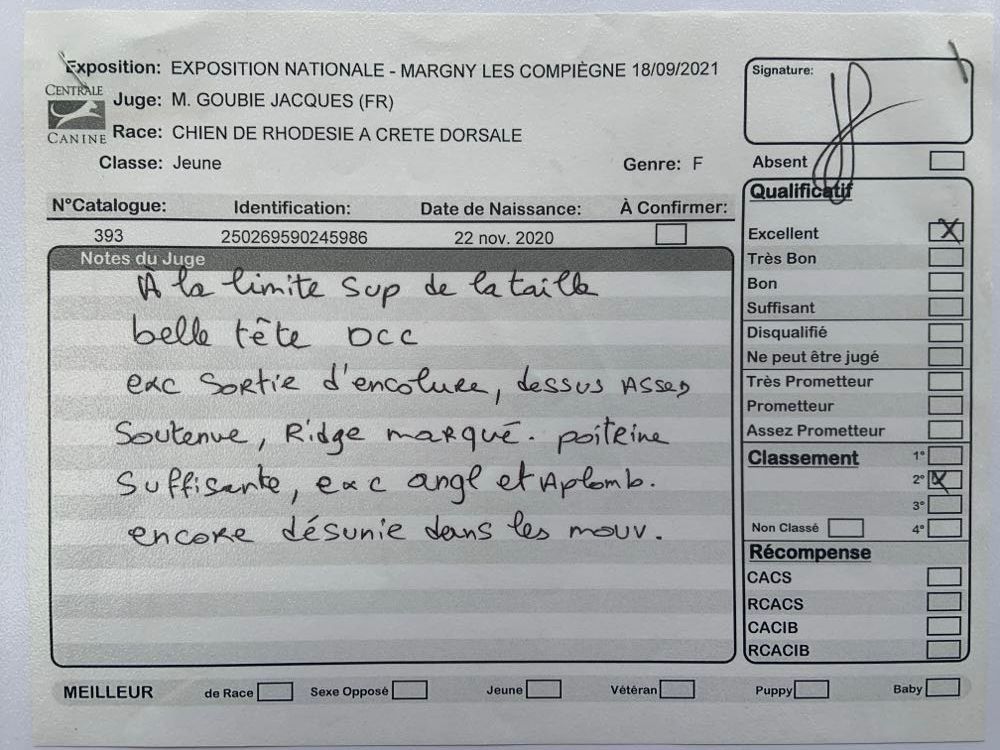 Exposition: EXPOSITION NATIONALE - MARGNY LES COMPIÈGNE 18/09/2021
CENTRALE
CANINE
Juge: M. GOUBIE JACQUES (FR)
Race: CHIEN DE RHODESIE A CRETE DORSALE
Classe: Jeune Genre: F
N°Catalogue: Identification: Date de Naissance: À Confirmer:
393 250269590245986 22 nov. 2020
Notes du Juge
À la limite sup de la taille
belle tête OCC
exc sortie d'encolure, dessus assez
soutenue, Ridge marqué. poitrine
suffisante, exc angl et Aplomb.
encore désunie dans les mouv.
Signature:
Absent
Qualificatif
Excellent X
Très Bon
Bon
Suffisant
Disqualifié
Ne peut être jugé
Très Prometteur
Prometteur
Assez Prometteur
Classement 1°
2° X
3°
Non Classé 4°
Récompense
CACS
RCACS
CACIB
RCACIB
MEILLEUR de Race Sexe Opposé Jeune Vétéran Puppy Baby